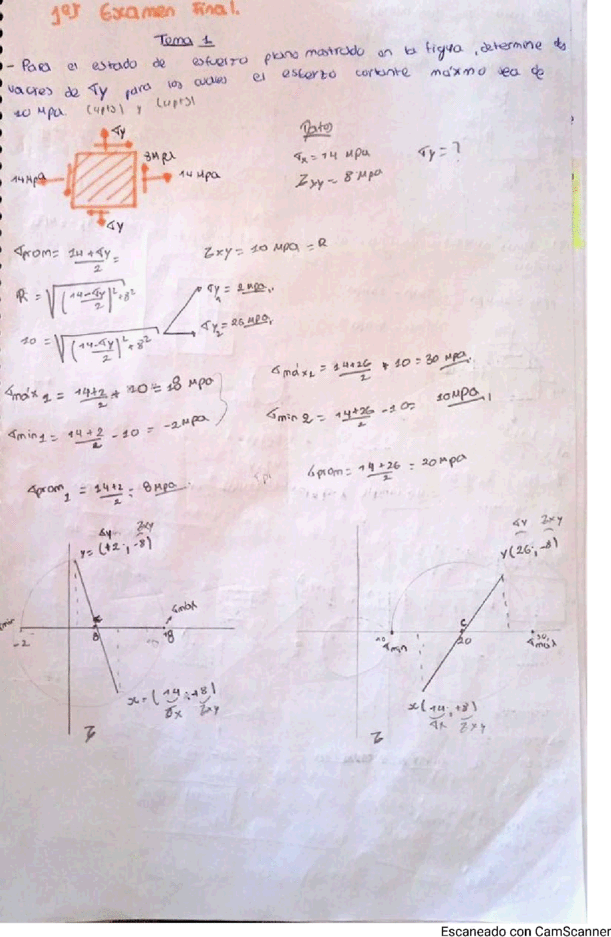 1er Examen Final.
Tema 1
- Para el estado de esfuerzo plano mostrado en la figura, determine los
valores de σy para los cuales el esfuerzo cortante máximo sea de
10 MPa. (4pts) y (4pts)
σy
8MPa
14MPa
14 MPa
σy
Datos
σx = 14 MPa
σy = ?
τxy = 8 MPa
σprom = 14+σy/2 =
τxy = 10 MPa = R
R = √((14-σy/2)² + 8²)
σy1 = 2MPa
10 = √((14-σy/2)² + 8²)
σy2 = 26MPa
σmáx1 = 14+2/2 + 10 = 18 MPa
σmáx2 = 14+26/2 + 10 = 30 MPa
σmin1 = 14+2/2 - 10 = -2MPa
σmin2 = 14+26/2 - 10 = 10MPa
σprom1 = 14+2/2 = 8MPa
σprom = 14+26/2 = 20MPa
σy τxy
y = (+2 ; -8)
σy τxy
y(26 ; -8)
σmáx
c
8
18
-2
c
20
10
σmin
30
σmáx
x = (14 ; +8)
σx τxy
τ
x(14 ; +8)
σx τxy
τ
Escaneado con CamScanner